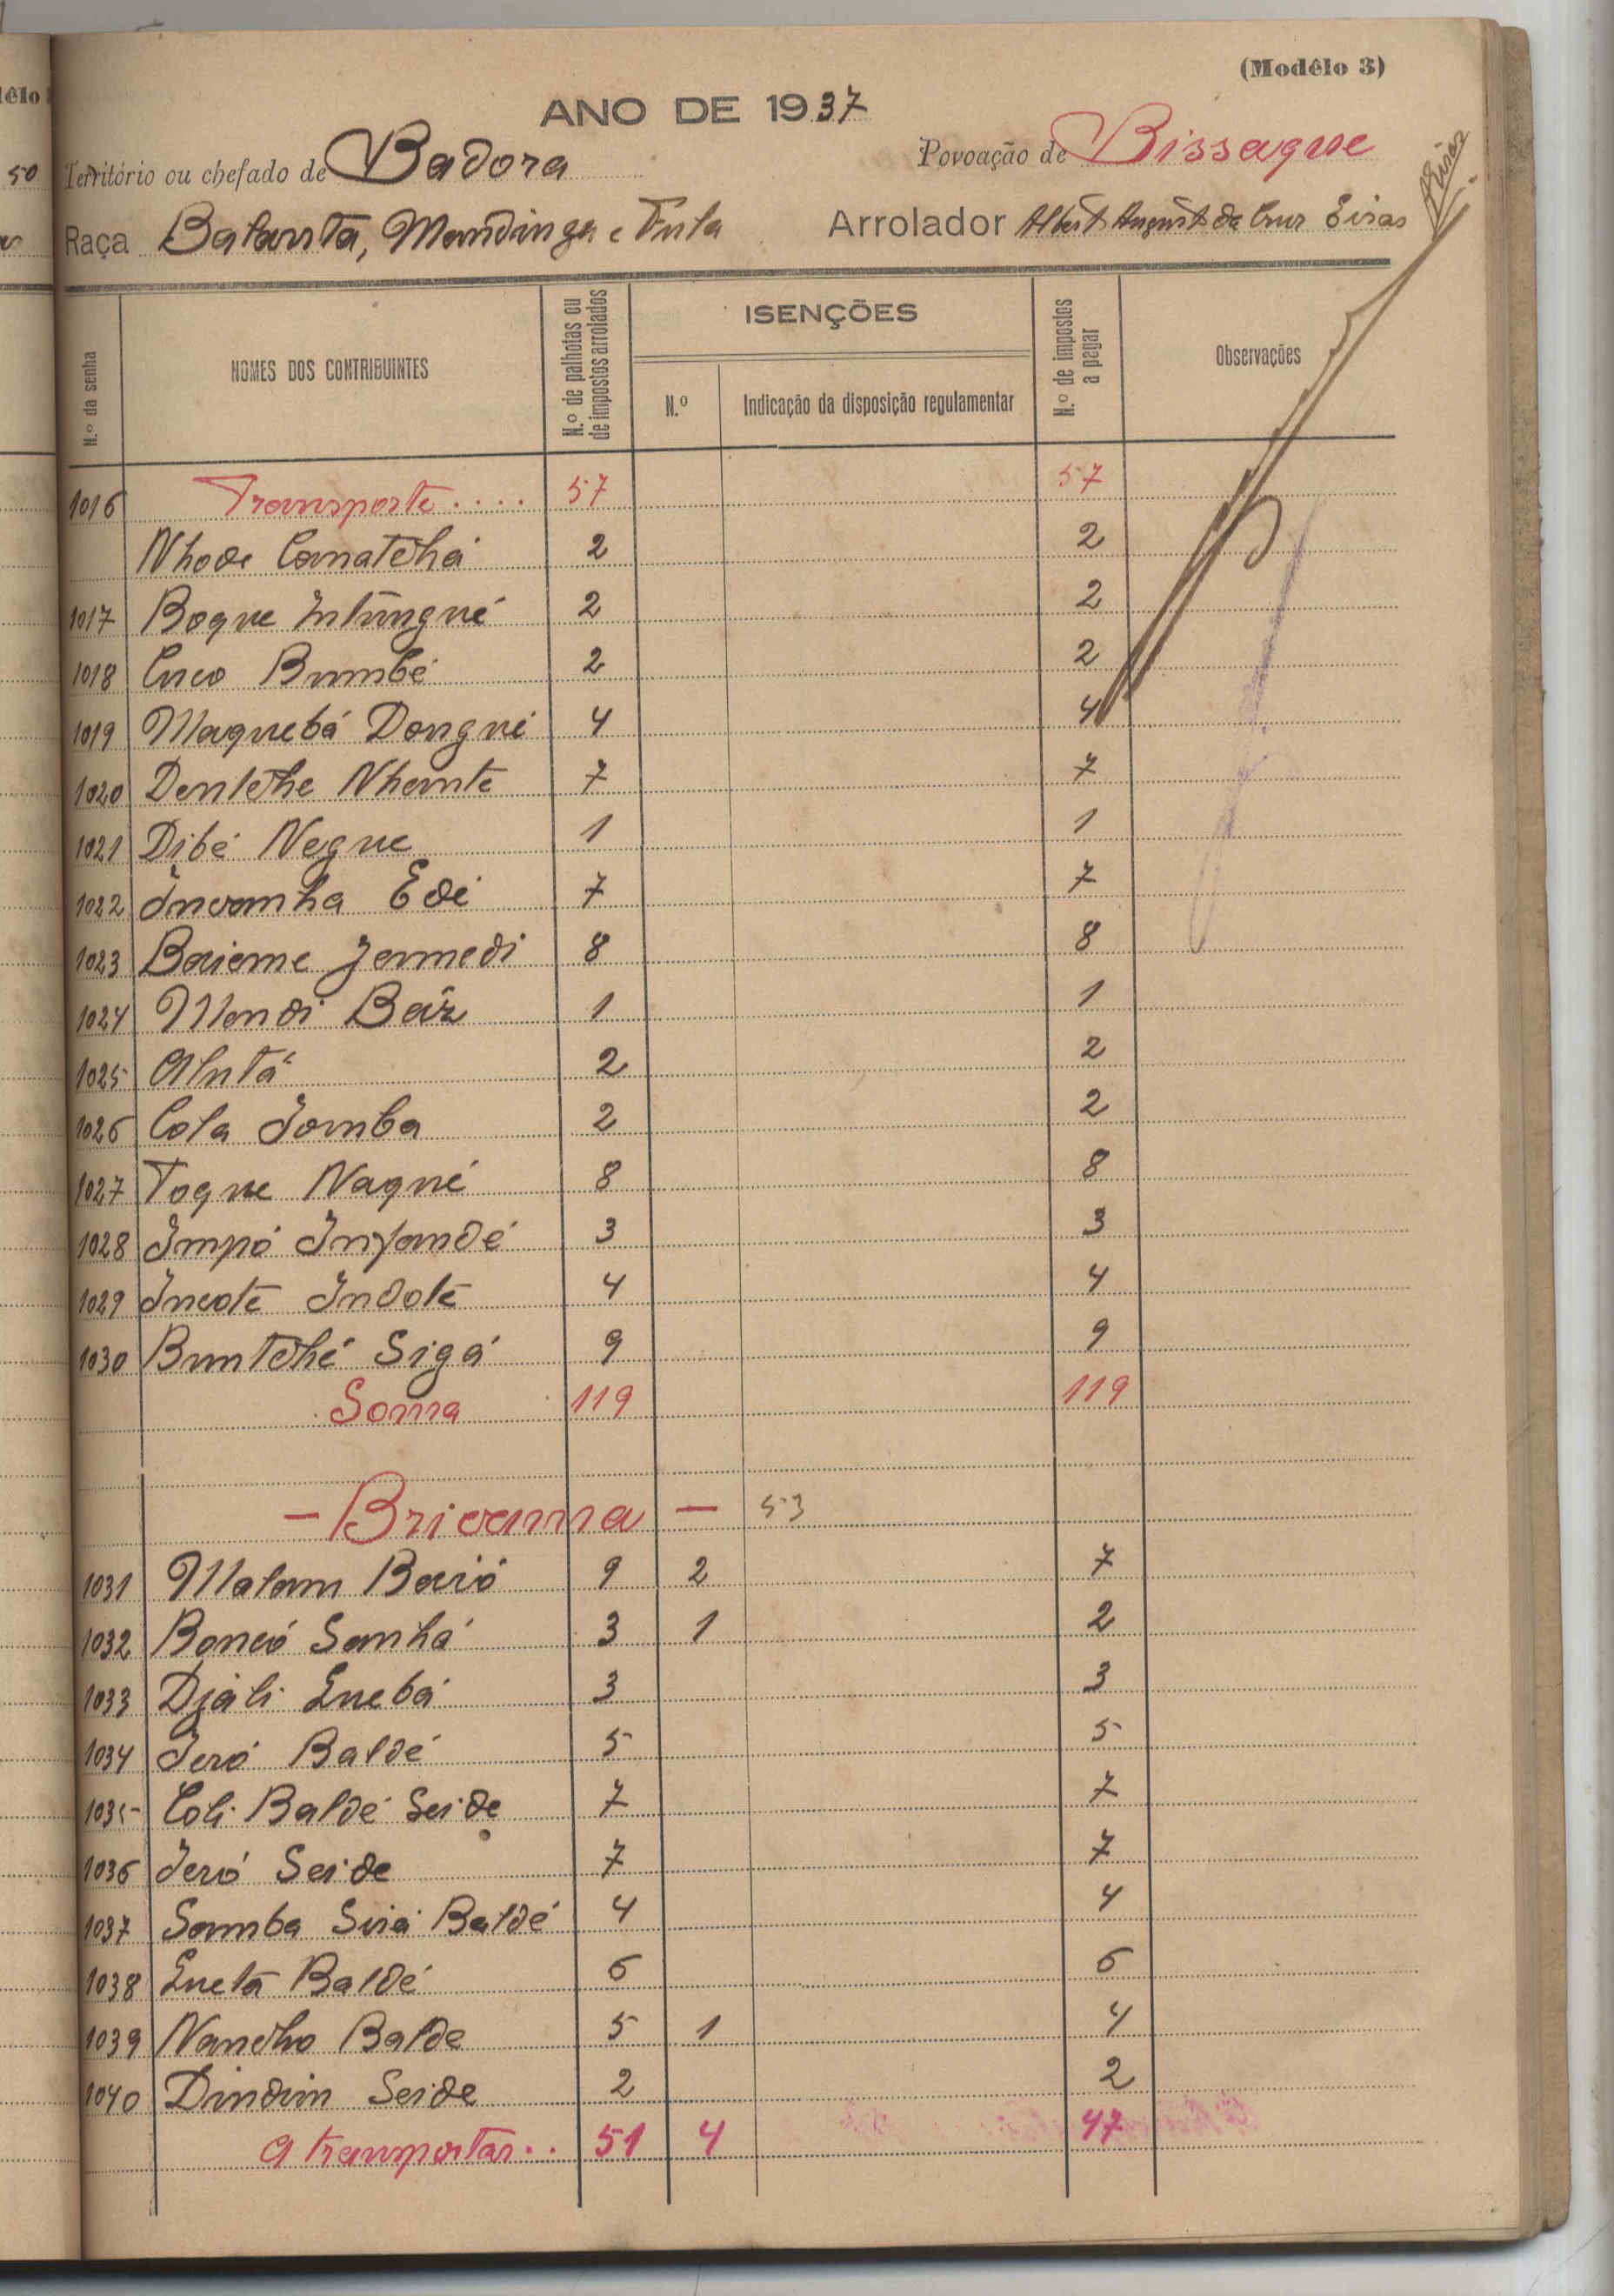 (Modêlo 3)
ANO DE 1937
Território ou chefado de Badora Povoação de Bissaque
Raça Balanta, Mandinga e Fula Arrolador Albert August da Cruz Eiras
Eiras
50
N.º da senha
NOMES DOS CONTRIBUINTES
N.º de palhotas ou de impostos arrolados
ISENÇÕES
N.º
Indicação da disposição regulamentar
N.º de impostos a pagar
Observações
1016 Transporte .... 57 57
Nhode Canatchá 2 2
1017 Boque Intungué 2 2
1018 Cuco Bumbé 2 2
1019 Maquebá Dongué 4 4
1020 Dentche Nhante 7 7
1021 Dibé Negue 1 1
1022 Incanha Edi 7 7
1023 Baieme Jamedi 8 8
1024 Mandi 1 1
1025 Alutá 2 2
1026 Cola Jomba 2 2
1027 Togue Naqué 8 8
1028 Impó Infandé 3 3
1029 Incote Indote 4 4
1030 Buntché Sigá 9 9
Soma 119 119
- Bricama - 53
1031 Malam Baió 9 2 7
1032 Boncó Sanhá 3 1 2
1033 Djáli Quebá 3 3
1034 Jeró Baldé 5 5
1035 Coli Baldé Seide 7 7
1036 Jeró Seide 7 7
1037 Samba Suiá Baldé 4 4
1038 Queta Baldé 6 6
1039 Nandho Balde 5 1 4
1040 Dindim Seide 2 2
A transportar.. 51 4 47